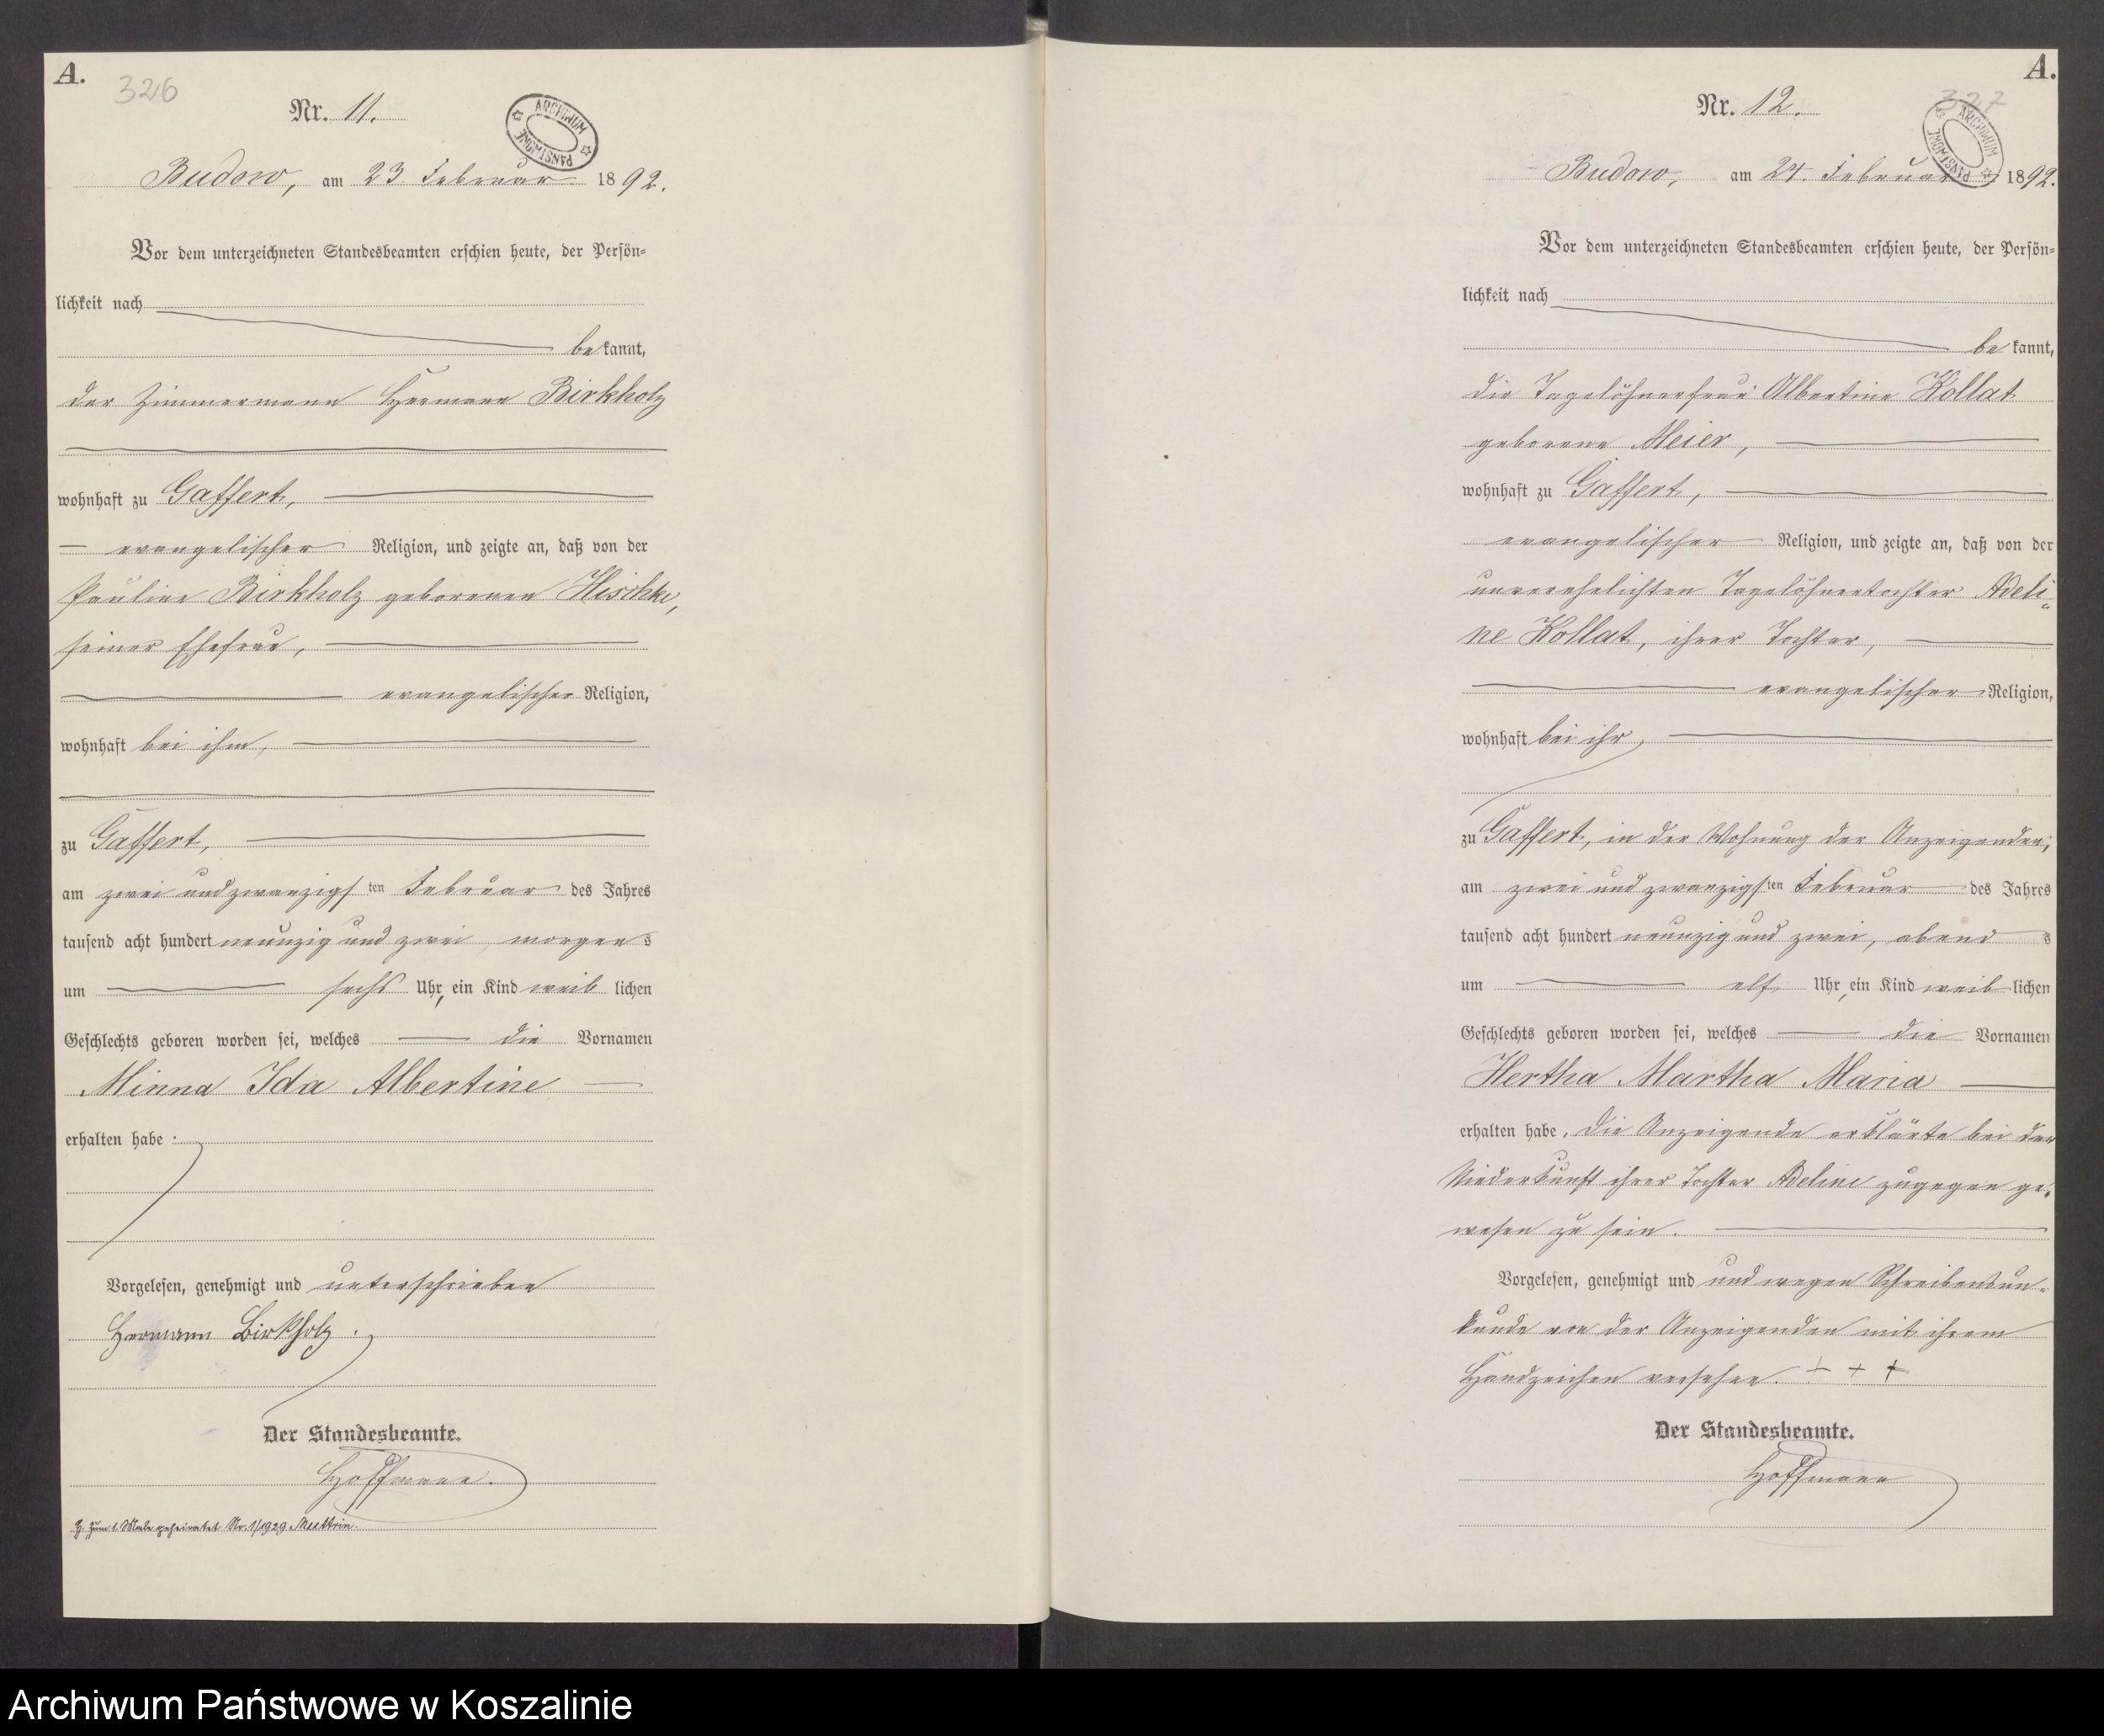 A.
326
Nr. 11.
ARCHIWUM PAŃSTWOWE
Budow, am 23. Februar 1892.
Vor dem unterzeichneten Standesbeamten erschien heute, der Persön-
lichkeit nach
bekannt,
der Zimmermann Hermann Birkholz
wohnhaft zu Gaffert,
evangelischer Religion, und zeigte an, daß von der
Pauline Birkholz geborenen Hischke,
seiner Ehefrau,
evangelischer Religion,
wohnhaft bei ihm,
zu Gaffert,
am zwei und zwanzigsten Februar des Jahres
tausend acht hundert neunzig und zwei, morgens
um sechs Uhr, ein Kind weiblichen
Geschlechts geboren worden sei, welches die Vornamen
Minna Ida Albertine
erhalten habe.
Vorgelesen, genehmigt und unterschrieben
Hermann Birkholz.
Der Standesbeamte.
Hoffmann.
zum 1. Male geheiratet Nr. 1/1929
A.
327
Nr. 12.
ARCHIWUM PAŃSTWOWE
Budow, am 24. Februar 1892.
Vor dem unterzeichneten Standesbeamten erschien heute, der Persön-
lichkeit nach
bekannt,
die Tagelöhnerfrau Albertine Kollat
geborene Meier,
wohnhaft zu Gaffert,
evangelischer Religion, und zeigte an, daß von der
unverehelichten Tagelöhnertochter Adeli-
ne Kollat, ihrer Tochter,
evangelischer Religion,
wohnhaft bei ihr,
zu Gaffert, in der Wohnung der Anzeigenden,
am zwei und zwanzigsten Februar des Jahres
tausend acht hundert neunzig und zwei, abends
um elf Uhr, ein Kind weiblichen
Geschlechts geboren worden sei, welches die Vornamen
Hertha Martha Maria
erhalten habe. Die Anzeigende erklärte bei der
Niederkunft ihrer Tochter Adeline zugegen ge-
wesen zu sein.
Vorgelesen, genehmigt und und wegen Schreibensun-
kunde von der Anzeigenden mit ihrem
Handzeichen versehen. + + +
Der Standesbeamte.
Hoffmann
Archiwum Państwowe w Koszalinie